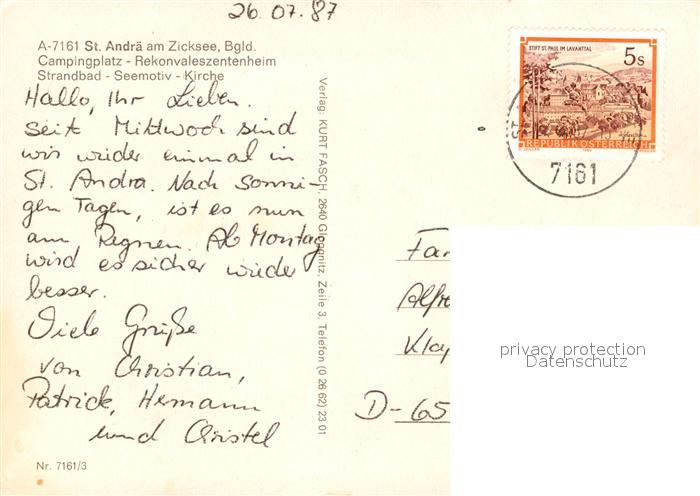 26.07.87
A-7161 St. Andrä am Zicksee, Bgld.
Campingplatz - Rekonvaleszentenheim
Strandbad - Seemotiv - Kirche
Hallo, Ihr Lieben.
Seit Mittwoch sind
wir wieder einmal in
St. Andrä. Nach sonni-
gen Tagen, ist es nun
am Regnen. Ab Montag
wird es sicher wieder
besser.
Viele Grüße
von Christian,
Patrick, Hermann
und Christel
Nr. 7161/3
Verlag: KURT FASCH, 2640 Gloggnitz, Zeile 3, Telefon (0 26 62) 23 01
STIFT ST. PAUL IM LAVANTTAL
5s
REPUBLIK ÖSTERREICH
1984
7161
Fam
Alfre
Klap
D-65
privacy protection
Datenschutz